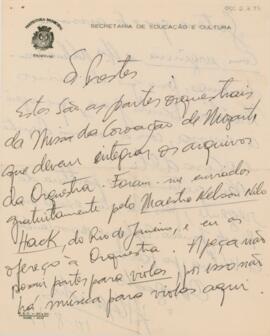 PREFEITURA MUNICIPAL
SECRETARIA DE EDUCAÇÃO E CULTURA
Estas são as partes orquestrais
da Missa da Coroação de Mozart,
que devem integrar os arquivos
da Orquestra. Foram-me enviados
gratuitamente pelo Maestro Nelson Nilo
Hack, do Rio de Janeiro, e eu os
ofereço à Orquestra. A peça não
possui partes para violas, por isso não
há música para violas aqui.